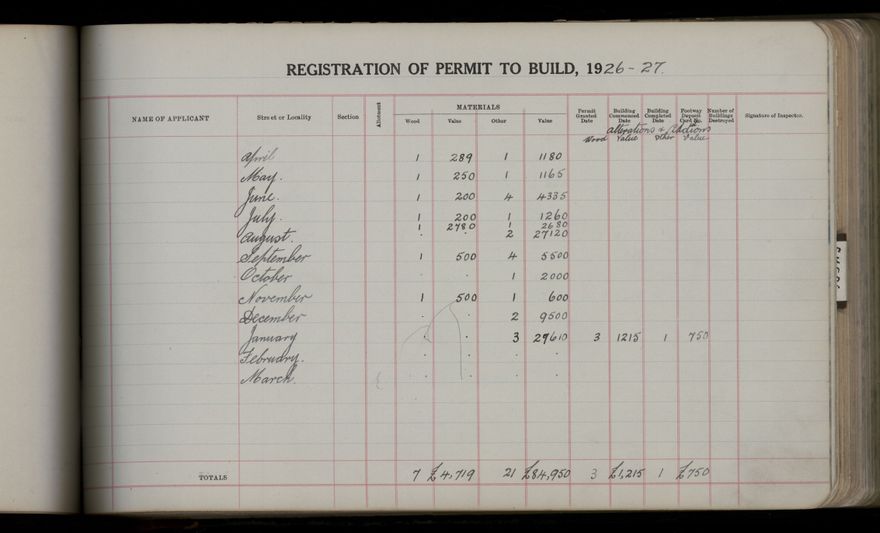 REGISTRATION OF PERMIT TO BUILD, 1926-27.
NAME OF APPLICANT Street or Locality Section Allotment MATERIALS Wood Value Other Value Permit Granted Date Building Commenced Date Building Completed Date Footway Deposit Card No. Number of Buildings Destroyed Signature of Inspector.
Alterations & Additions
Wood Value Other Value
April 1 289 1 1180
May. 1 250 1 1165
June. 1 200 4 4335
July. 1 200 1 1260
1 2780 1 2680
August. . . 2 27120
September 1 500 4 5500
October . . 1 2000
November 1 500 1 600
December . . 2 9500
January . . 3 29610 3 1215 1 750
February. . . . .
March. . . . .
TOTALS 7 £4,719 21 £84,950 3 £1,215 1 £750